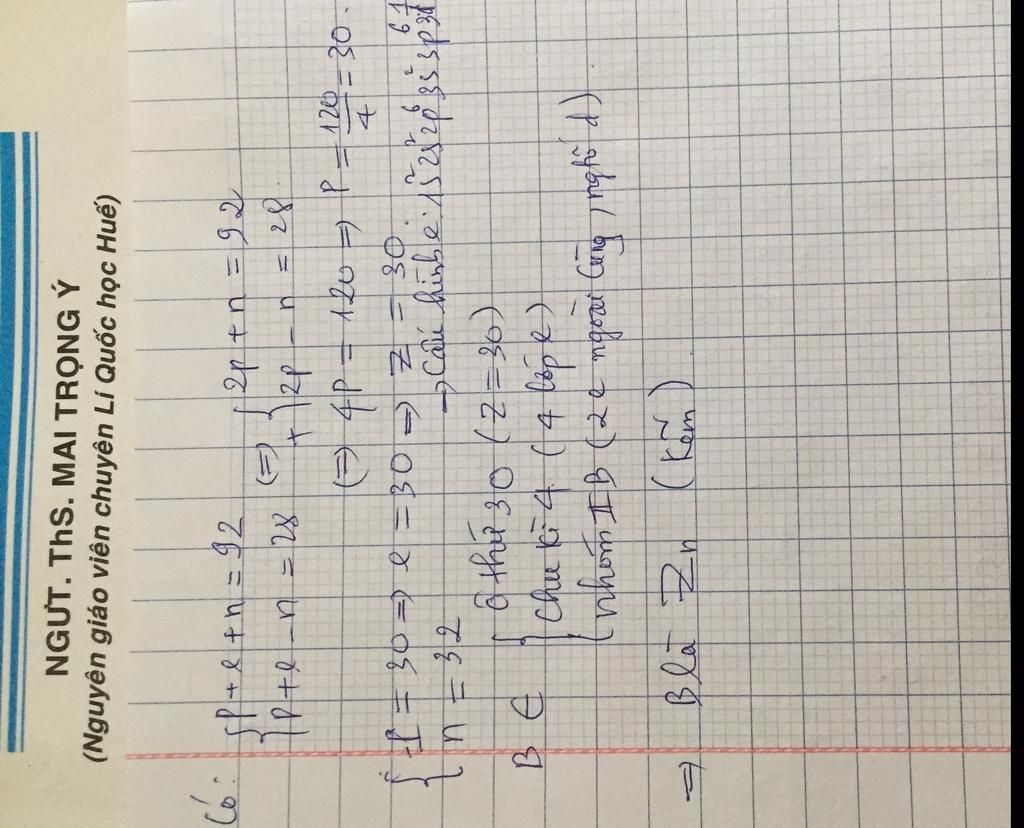 NGƯT. ThS. MAI TRỌNG Ý
(Nguyên giáo viên chuyên Lí Quốc học Huế)
Có: { p + e + n = 92 (=) { 2p + n = 92
{ p + e – n = 28 + { 2p – n = 28
(=) 4p = 120 => p = 120/4 = 30.
{ p = 30 => e = 30 => Z = 30.
{ n = 32 → Cấu hình e: 1s² 2s² 2p⁶ 3s² 3p⁶
B ∈ { ô thứ 30 (Z = 30)
{ chu kì 4 (4 lớp e)
{ nhóm IIB (2e ngoài cùng, nghố d)
=> B là Zn (kẽm)